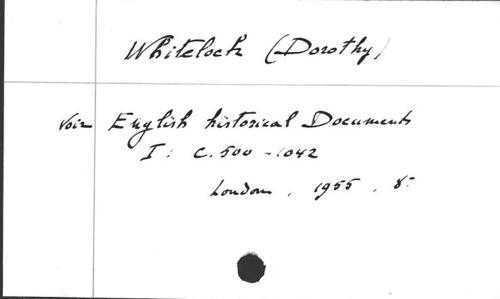 Whitelock (Dorothy)
Voir English historical Documents
I: C. 500 - 1042
London, 1955, 8°